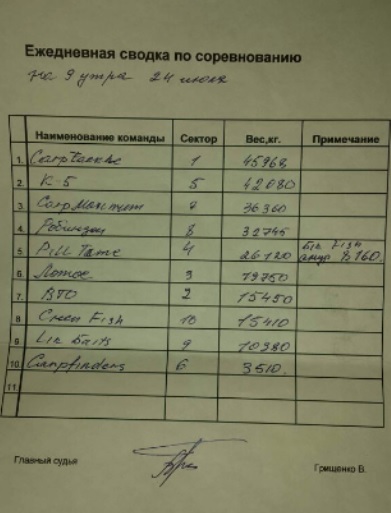 Ежедневная сводка по соревнованию
на 9 утра 24 июля
Наименование команды Сектор Вес,кг. Примечание
1. 1 45968
2. K-5 5 42080
3. Carp Maximum 36360
4. Робинзон 8 32745
5. Pill Tame 4 26120 Big Fish 8.160.
6. Лотос 3 19750
7. ВТО 2 15450
8. Fish 10 15410
9. Baits 9 10380
10. Carpfinders 6 3510.
11.
Главный судья Грищенко В.